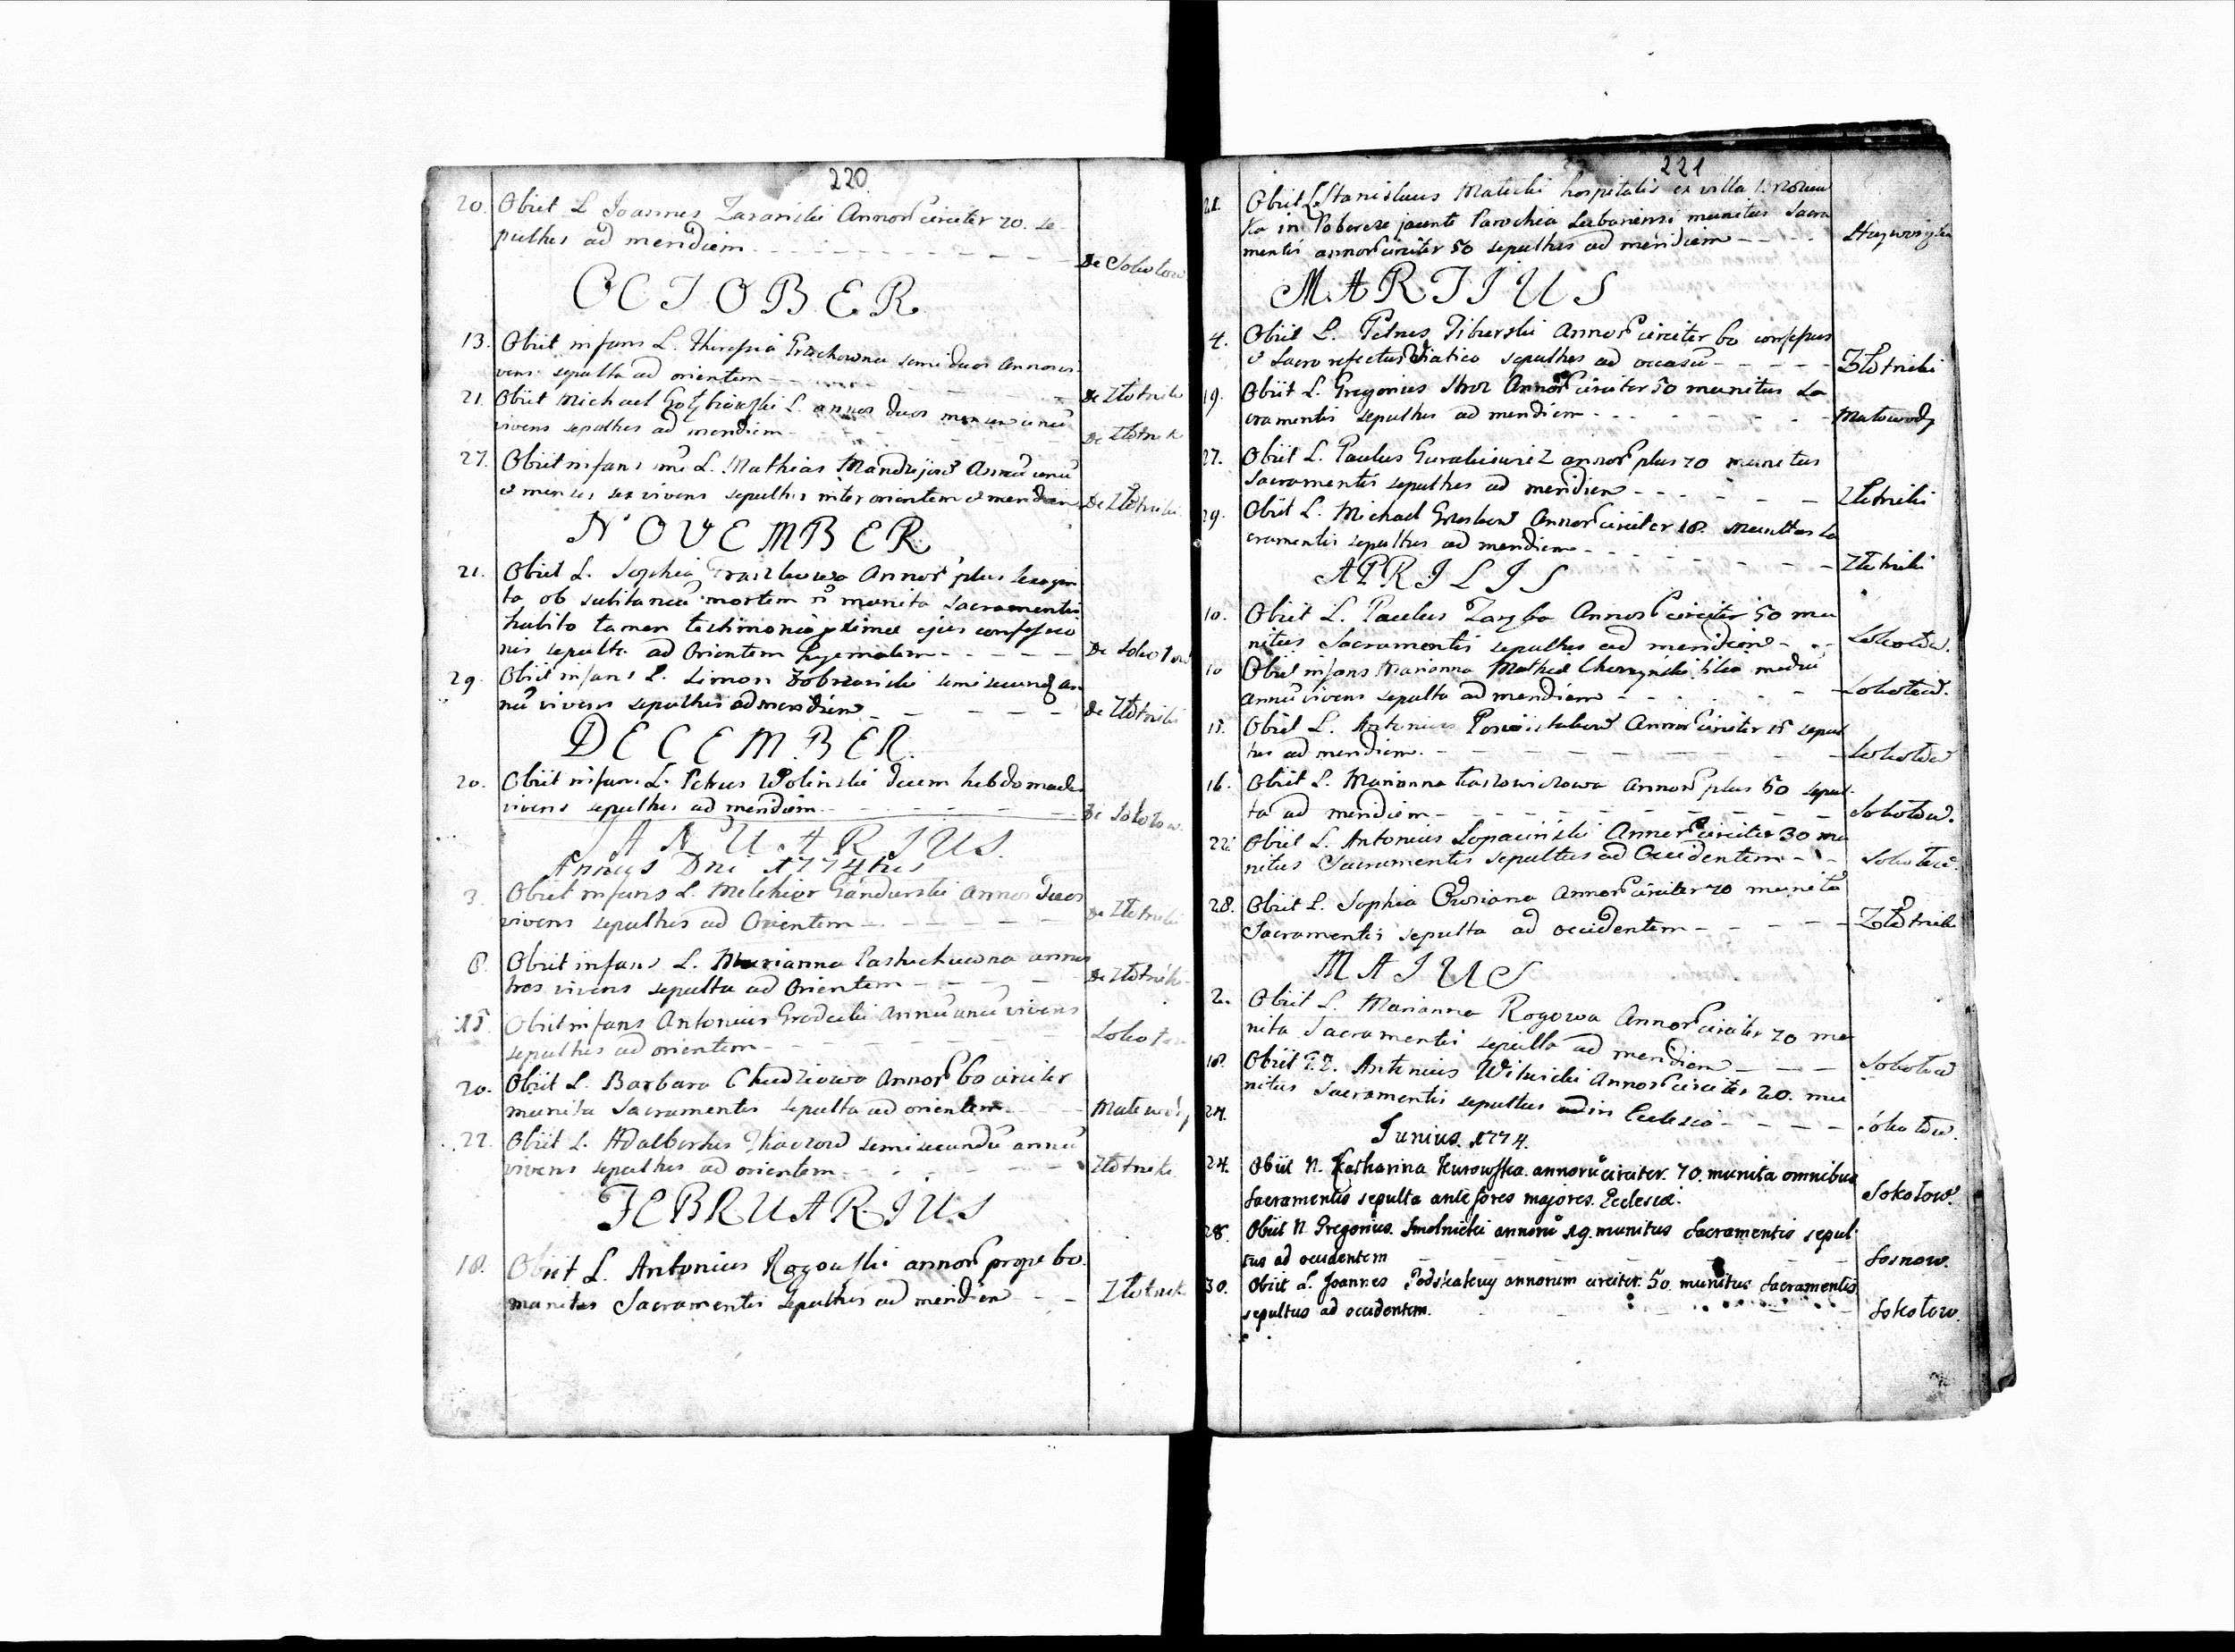 220
20. Obiit L Joannes Zaranski Annor circiter 70. se
pultus ad meridiem De Sokołow
OCTOBER
13. Obiit infans L. Theresia semi duos Annorum
vivens sepulta ad orientem De Złotniki
21. Obiit Michael L. annos duos mensem unū
vivens sepultus ad meridiem De Złotnik
27. Obiit infans L. Mathias Mandryjow Annū unū
et menses sex vivens sepultus inter orientem et meridiem De Złotniki
NOVEMBER
21. Obiit L. Sophia Annor plus sexagin
ta ob subitaneā mortem n munita Sacramentis
habito tamen testimonio ejus confessio
nis sepulta ad Orientem hyemalem De Sokołow
29. Obiit infans L. Simon Dobrzanski semi secund an
nū vivens sepultus ad meridiem De Złotniki
DECEMBER
20. Obiit infans L. Petrus Wolinski decem hebdomades
vivens sepultus ad meridiem De Sokolow
JANUARIUS
Annus Dni 1774tus
3. Obiit infans L. Melchior Gandurski Annos duos
vivens sepultus ad Orientem De Złotniki
8. Obiit infans L. Marianna Pastuchuwna annos
tres vivens sepulta ad Orientem De Złotniki
15. Obiit infans Antonius Grodecki Annū unū vivens
sepultus ad orientem Sokołow
20. Obiit L. Barbara Chudziowa Annor 60 circiter
munita Sacramentis sepulta ad orientem Matowody
22. Obiit L. Adalbertus Tkaczow semi secundū annū
vivens sepultus ad orientem Złotniki
FEBRUARIUS
18. Obiit L. Antonius Rogouski annor prope 60.
munitus Sacramentis sepultus ad meridiem Złotnik
221
21. Obiit L Stanislaus Matecki hospitalis ex villa
ka in Pobereze jacente Parochia Lubaniensi munitus Sacra
mentis annor circiter 50 sepultus ad meridiem
MARTIUS
4. Obiit L. Petrus Tiburski Annor circiter 60 confessus
et Sacro refectus Viatico sepultus ad occasū Złotniki
19. Obiit L. Gregorius Annor circiter 50 munitus Sa
cramentis sepultus ad meridiem Matowody
27. Obiit L. Paulus Guralewicz annor plus 70 munitus
Sacramentis sepultus ad meridiem Złotniki
29. Obiit L. Michael Annor circiter 18. munitus Sa
cramentis sepultus ad meridiem Złotniki
APRILIS
10. Obiit L. Paulus Zayba Annor circiter 50 mu
nitus Sacramentis sepultus ad meridiem Sokołow.
10 Obiit infans Marianna filia mediū
annū vivens sepulta ad meridiem Sokołow.
15. Obiit L. Antonius Annor circiter 15 sepul
tus ad meridiem. Sokołow
16. Obiit L. Marianna Karwowiczowa Annor plus 50 sepul
ta ad meridiem Sokołow.
22. Obiit L. Antonius Lopacinski Annor circiter 30 mu
nitus Sacramentis sepultus ad Occidentem Sokołow.
28. Obiit L. Sophia Annor circiter 70 munita
Sacramentis sepulta ad occidentem Złotnik
MAIUS
2. Obiit L. Marianna Rogowa Annor circiter 70 mu
nita Sacramentis sepulta ad meridiem Sokołow
18. Obiit Antonius Witwicki Annor circiter 20. mu
nitus Sacramentis sepultus in Ecclesia Sokołow.
24.
Junius. 1774.
24. Obiit N. Katharina Kurowska annorū circiter. 70. munita omnibus
Sacramentis sepulta ante fores majores. Ecclesiæ. Sokołow.
28. Obiit N. Gregorius. Smolnicki annorū 19. munitus Sacramentis sepul
tus ad occidentem Sosnow.
30. Obiit L. Joannes annorum circiter. 50. munitus Sacramentis
sepultus ad occidentem. Sokołow.